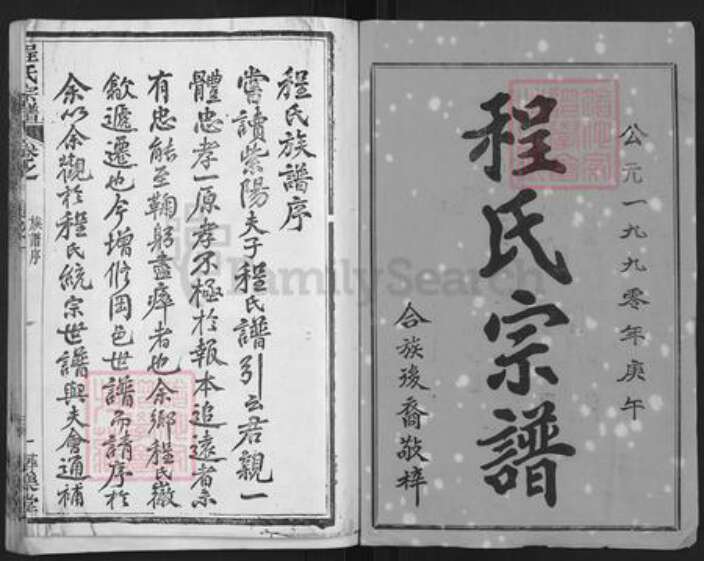 公元一九九零年庚午
程氏宗譜
合族後裔敬梓
程氏族譜序
嘗讀紫陽夫子程氏譜引云君親一
體忠孝一原孝不極於報本追遠者未
有忠能至鞠躬盡瘁者也余鄉程氏徽
歙遞遷也今增修岡邑世譜而請序於
余以余觀於程氏統宗世譜與夫會通補
程氏宗譜
族譜序
FamilySearch